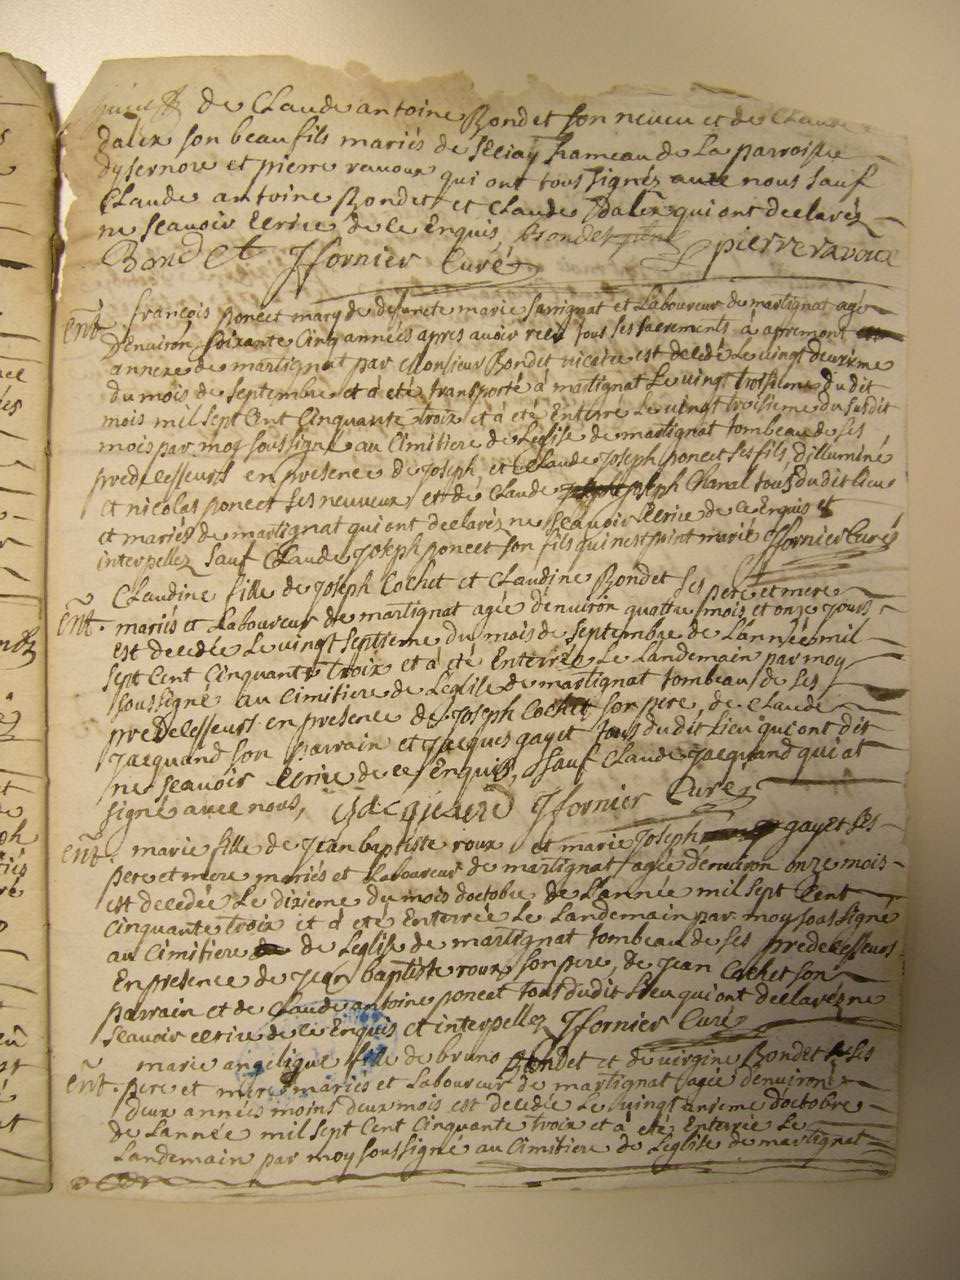 de Claude antoine Bondet son neveu et de Claude
dalex son beau fils mariés de hameau de La parroisse
dysernore et pierre ravoux qui ont tous signéz avec nous sauf
Claude antoine Bondet et Claude Dalex qui ont declaréz
ne scavoir Ecrire de ce Enquis Bondet
Bondet Jfornier Curé pierre ravoux
Ent. francois poncet mary de defuncte marie Savignat et Laboureur de martignat agé
D'environ soixante Cinq années apres avoir receu tous ses sacrements à apremont
annexe de martignat par Monsieur Bondet vicaire est decedé Le vingt deuxieme
du mois de septembre et a été transporté à martignat Le vingt troisieme du dit
mois mil sept Cent Cinquante troix et a été Enterré Le vingt troisieme du susdit
mois par moy soussigné au Cimitiere de Leglise de martignat tombeau de ses
predecesseurs en presence de Joseph et Claude Joseph poncet ses fils, d'illuminé
et nicolas poncet ses neuveux et de Claude Joseph Chanal tous du dit lieu
et mariés de martignat qui ont declaréz ne scavoir Ecrire de ce Enquis et
interpellez sauf Claude Joseph poncet son fils qui n'est point marié Jfornier Curé
Claudine fille de Joseph Cochet et Claudine Bondet ses pere et mere
Ent. mariés et Laboureur de martignat agée d'environ quattre mois et onze jours
est decedée Le vingt septieme du mois de septembre de L'année mil
sept Cent Cinquante troix et a été Enterrée Le Landemain par moy
soussigné au Cimitiere de L'eglise de martignat tombeau de ses
predecesseurs en presence de Joseph Cochet son pere, de Claude
Jacquand son parrain et Jacques gayet tous du dit Lieu qui ont dit
ne scavoir Ecrire de ce Enquis, sauf Claude Jacquand qui at
signé avec nous, Jfornier Curé
Ent. marie fille de Jean baptiste roux et marie Joseph gayet ses
pere et mere mariés et Laboureur de martignat agée d'environ onze mois
est decedée Le dixieme du mois d'octobre de L'année mil sept Cent
Cinquante troix et a été Enterrée Le Landemain par moy soussigné
au Cimitiere de Leglise de martignat tombeau de ses predecesseurs
En presence de Jean baptiste roux son pere, de Jean Cochet son
parrain et de Claude antoine poncet tous du dit Lieu qui ont declaréz ne
scavoir ecrire de ce Enquis et interpellez Jfornier Curé
marie angelique fille de bruno Bondet et de virgine Bondet ses
Ent. pere et mere mariés et Laboureur de martignat agée d'environ
deux années moins deux mois est decedée Le vingt unieme d'octobre
de L'année mil sept Cent Cinquante troix et a été Enterrée Le
Landemain par moy soussigné au Cimitiere de L'eglise de martignat